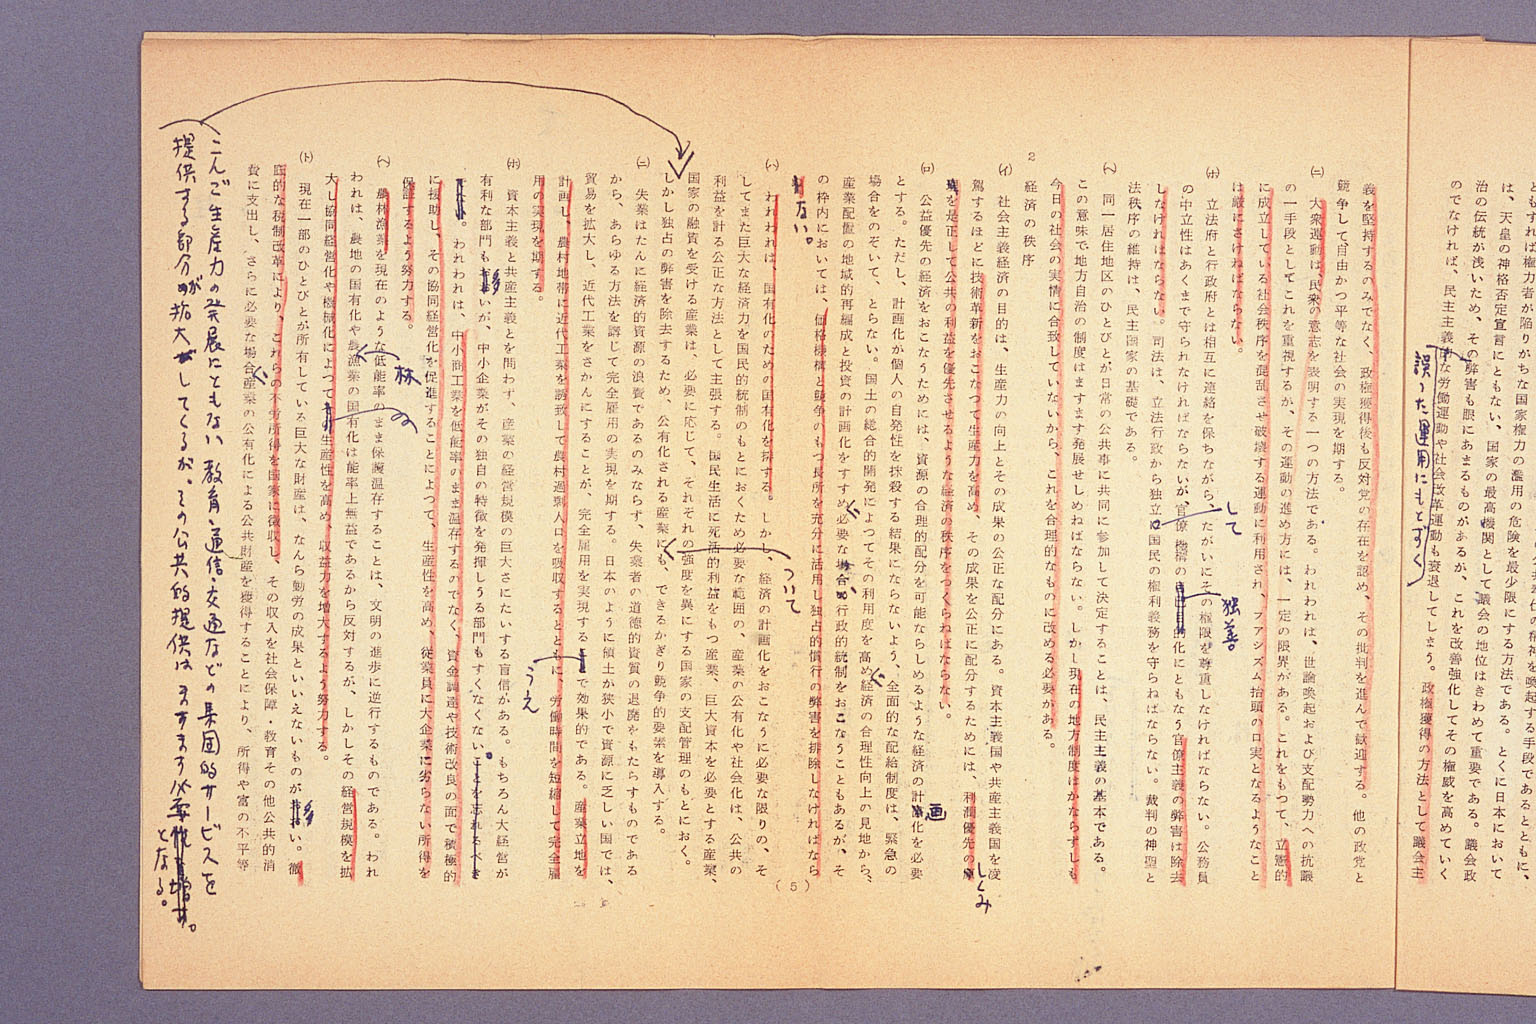 もすれば権力者が陥りがちな国家権力の濫用の危険を最少限にする方法である。とくに日本において
は、天皇の神格否定宣言にともない、国家の最高機関として議会の地位はきわめて重要である。議会政
治の伝統が浅いため、その弊害も眼にあまるものがあるが、これを改善強化してその権威を高めていく
のでなければ、民主主義的な労働運動や社会改革運動も衰退してしまう。政権獲得の方法として議会主
誤った運用にもとずく
義を堅持するのみでなく、政権獲得後も反対党の存在を認め、その批判を進んで歓迎する。他の政党と
競争して、自由かつ平等な社会の実現を期する。
㈡ 大衆運動は、民衆の意志を表明する一つの方法である。われわれは、世論喚起および支配勢力への抗議
の一手段としてこれを重視するが、その運動の進め方には、一定の限界がある。これをもつて、立憲的
に成立している社会秩序を混乱させ破壊する運動に利用され、ファシズム抬頭の口実となるようなこと
は厳にさけねばならない。
㈭ 立法府と行政府とは相互に連絡を保ちながら、たがいにその権限を尊重しなければならない。公務員
の中立性はあくまで守られなければならないが、官僚機構の
的化にともなう官僚主義の弊害は除去
しなければならない。司法は、立法行政から独立
国民の権利義務を守らねばならない。裁判の神聖と
して
独善
法秩序の維持は、民主国家の基礎である。
㈥ 同一居住地区のひとびとが日常の公共事に共同に参加して決定することは、民主主義の基本である。
この意味で地方自治の制度はますます発展せしめねばならない。しかし現在の地方制度はかならずしも
今日の社会の実情に合致していないから、これを合理的なものに改める必要がある。
2 経済の秩序
㈠ 社会主義経済の目的は、生産力の向上とその成果の公正な配分にある。資本主義国や共産主義国を凌
駕するほどに技術革新をおこなつて生産力を高め、その成果を公正に配分するためには、利潤優先の
しくみ
を是正して公共の利益を優先させるような経済の秩序をつくらねばならない。
㈺ 公益優先の経済をおこなうためには、資源の合理的配分を可能ならしめるような経済の計画化を必要
画
とする。ただし、計画化が個人の自発性を抹殺する結果にならないよう、全面的な配給制度は、緊急の
場合をのぞいて、とらない。国土の総合的開発によつてその利用度を高め、経済の合理性向上の見地から、
産業配置の地域的再編成と投資の計画化をすすめ、必要な場合
行政的統制をおこなうこともあるが、そ
の枠内においては、価格機構と競争のもつ長所を充分に活用し独占的慣行の弊害を排除しなければなら
ない。
㈧ われわれは、国有化のための国有化を採する。しかし、経済の計画化をおこなうに必要な限りの、そ
してまた巨大な経済力を国民的統制のもとにおくため必要な範囲の、産業の公有化や社会化は、公共の
ついて
利益を計る公正な方法として主張する。国民生活に死活的利益をもつ産業、巨大資本を必要とする産業、
国家の融資を受ける産業は、必要に応じて、それぞれの強度を異にする国家の支配管理のもとにおく。
しかし独占の弊害を除去するため、公有化される産業にも、できるかぎり競争的要素を導入する。
㈡ 失業はたんに経済的資源の浪費であるのみならず、失業者の道徳的資質の退廃をもたらすものである
から、あらゆる方法を講じて完全雇用の実現を期する。日本のように領土が狭小で資源に乏しい国では、
貿易を拡大し、近代工業をさかんにすることが、完全雇用を実現する
で効果的である。産業立地を
うえ
計画し、農村地帯に近代工業を誘致して農村過剰人口を吸収するとともに、労働時間を短縮して完全雇
用の実現を期する。
㈭ 資本主義と共産主義とを問わず、産業の経営規模の巨大さにたいする盲信がある。もちろん大経営が
有利な部門も多いが、中小企業がその独自の特徴を発揮しうる部門もすくなくない。ことを忘れるべき
多
。われわれは、中小商工業を低能率のまま温存するのでなく、資金調達や技術改良の面で積極的
に援助し、その協同経営化を促進することによつて、生産性を高め、従業員に大企業に劣らない所得を
保証するよう努力する。
㈥ 農林漁業を現在のような低能率のまま保護温存することは、文明の進歩に逆行するものである。われ
林
われは、農地の国有化や農漁業の国有化は能率上無益であるから反対するが、しかしその経営規模を拡
の
大し協同経営化や機械化によつて
生産性を高め、収益力を増大するよう努力する。
㈦ 現在一部のひとびとが所有している巨大な財産は、なんら勤労の成果といいえないものが多い。徹
底的な税制改革により、これらの不労所得を国家に徴収し、その収入を社会保障・教育その他公共的消
費に支出し、さらに必要な場合産業の公有化による公共財産を獲得することにより、所得や富の不平等
こんご生産力の発展にともない教育、通信、交通などの集団的サービスを
提供する部分が拡大してくるが、その公共的提供はますます必要
となる。
( 5 )